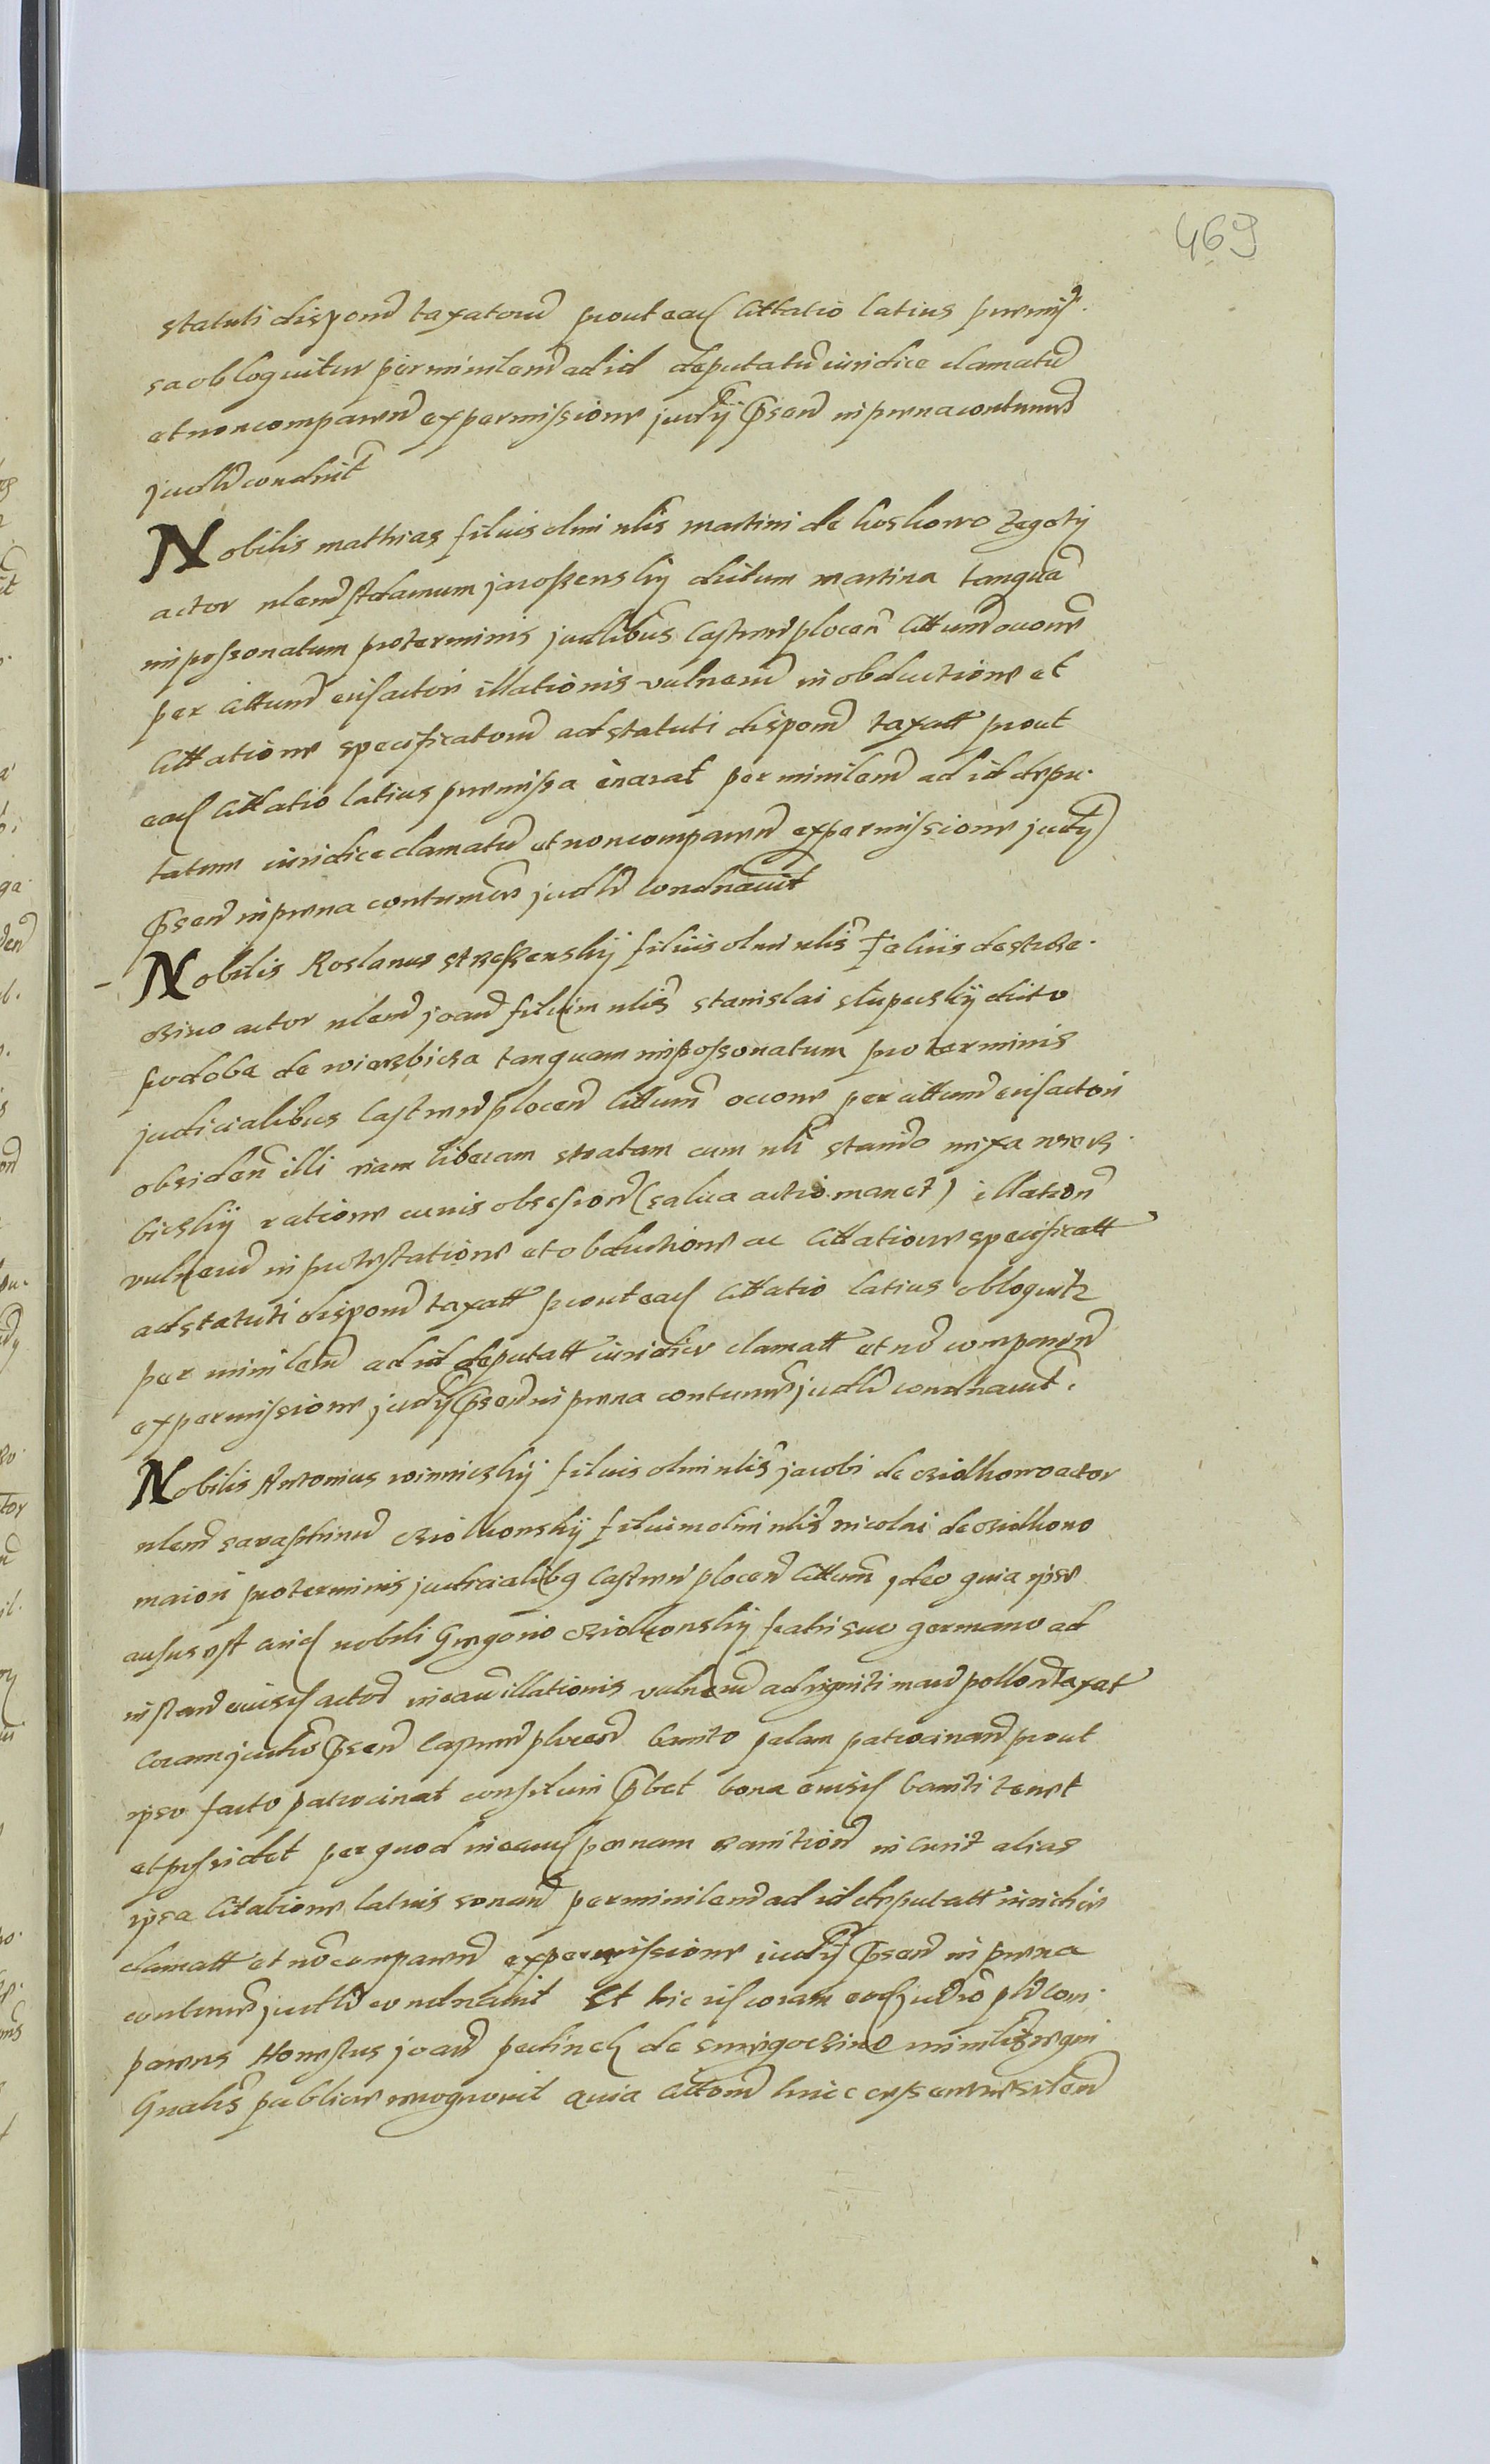 469
statuti dispone͂ taxatoru͂ prout eadͤ Citatio latius premis.
sa obloquitur per ministeria͂ ad id deputatu͂ iuridice clamatu͂
et non comparen͂ ex permissione judicÿ p͂sen͂ in pena contumac͂
judl͂i condnavit
Nobilis mathias filius olim nlis͂ martini de koskowo Zegoty
actor nlem͂ adamum jaroszenskÿ dictum martina tanqua͂
impossonatum pro terminis judlibus͂ Castren͂ plocen͂ Citatum͂ occone͂
per Citatum͂ eisdͤ actori illationis vulneru͂ in obductione et
Citatione specificatoru͂ ad statuti dispone͂ taxatt prout
eadͤ Citatio latius premissa enarat per ministeria͂ ad id depu.
tatum iuridice clamatu͂ et non comparen͂ ex permissione judicÿ
p͂sen͂ in pena contumac͂ judl͂i condnavit
Nobilis Roslanus strzeszenskÿ filius olim nlis͂ Felicis de strze.
szino actor nlem͂ joan͂ filium nlis͂ stanislai slupeckÿ dicto
podoba de wierzbicza tanquam impossonatum pro terminis
judicialibus Castren͂ plocen͂ Citatum͂ occone per citatum͂ eisdͤ actori
obsiden͂ illi viam liberam stratam cum nli͂ stanis͂o mixa wierz.
bickÿ ratione cuius obsesion͂ (salva actio manet) illation͂
vulneru͂ in protestatione et obductione ac Citatione specificatt
ad statuti dispone͂ taxatt prout eadͤ Citatio latius obloquitr
per ministeria͂ ad id deputatt iuridice clamatt et no͂ comparen͂
ex permissione judicÿ p͂sen͂ in pena contumac͂ judl͂i condnavit.
Nobilis Antonius winnickÿ filius olim nlis͂ jacobi de cziolkowo actor
nlem͂ seraphinu͂ cziolkonskÿ filium olim nlis͂ nicolai de cziolkowo
maiori pro terminis judicialibq Castren͂ plocen͂ Citatum͂ ideo quia ipse
ausus est cuidͤ nobili Gregorio cziolkonskÿ fratri suo germano ad
instan͂ eiusdͤ actoris in causa͂ illationis vulneru͂
Coram judicio p͂sen͂ Castren͂ plocen͂ banito palam patrocinari prout
ipso facto patrocinat consilium p͂bet bona eiusdͤ baniti tenet
et possidet per quod in eandͤ penam banition͂ incurit alias
ipsa Citatione latius sonan͂ per ministeria͂ ad id deputatt iuridice
clamatt et no͂ comparen͂ ex permissione iudicÿ p͂sen͂ in pena
contumac͂ judl͂i condnavit Et hic ibidͤ coram eodͤ judicio personaliter com.
parens Honestus joan͂ pechnik de smigoczino ministerialis regni
Gnalis͂ publice recognovit quia